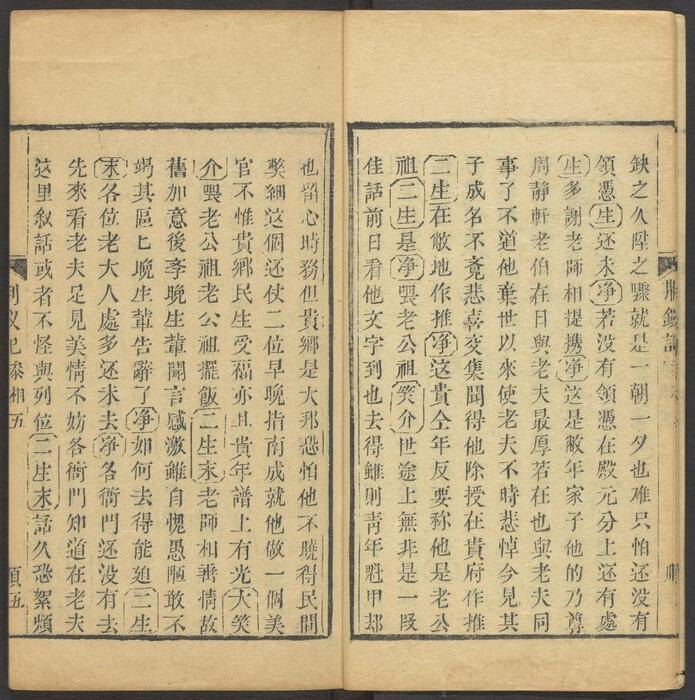 缺之久陞之驟就是一朝一夕也难只怕还没有
領憑生还未净若没有領憑在殿元分上还有處
生多謝老師相提携净这是敝年家子他的乃尊
周靜軒老伯在日與老夫最厚若在也與老夫同
事了不道他棄世以來使老夫不時悲悼今見其
子成名不竟悲喜交集聞得他除授在貴府作推
二生在敝地作推净这貴仝年反要称他是老公
祖二生是净喂老公祖笑介世途上無非是一叚
佳話前日看他文字到也去得雖則青年魁甲却
也畱心時務但貴鄉是大邦恐怕他不曉得民間
獘細这個还仗二位早晚指南成就他做一個美
官不惟貴鄉民生受福亦且貴年譜上有光大笑
介喂老公祖老公祖擺飯二生末老師相舊情故
舊加意後李晚生輩聞言感激雖自愧愚陋敢不
竭其區匕晚生輩告辭了净如何去得能廹二生
末各位老大人處多还未去净各衙門还没有去
先來看老夫足見美情不妨各衙門知道在老夫
这里叙話或者不怪與列位二生末話久恐絮煩
相五
頁五